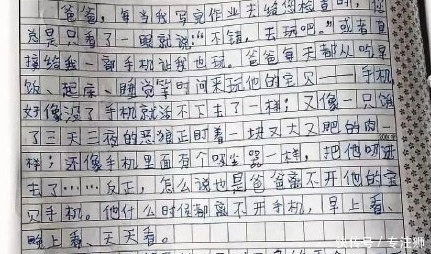 爸爸,每当我写完作业去给您检查时,您
总是只看了一眼就说:“不错,去玩吧。”或者直
接给我一部手机让我也玩。爸爸每天都从吃早
饭、起床、睡觉等时间来玩他的宝贝——手机,
好像没了手机就活不下去了一样;又像一只饿
了三天三夜的恶狼正盯着一块又大又肥的肉一
样;还像手机里面有个吸尘器一样,把他吸进
去了……反正,怎么说也是爸爸离不开他的宝
贝手机。他什么时候都离不开手机,早上看、
晚上看、天天看。